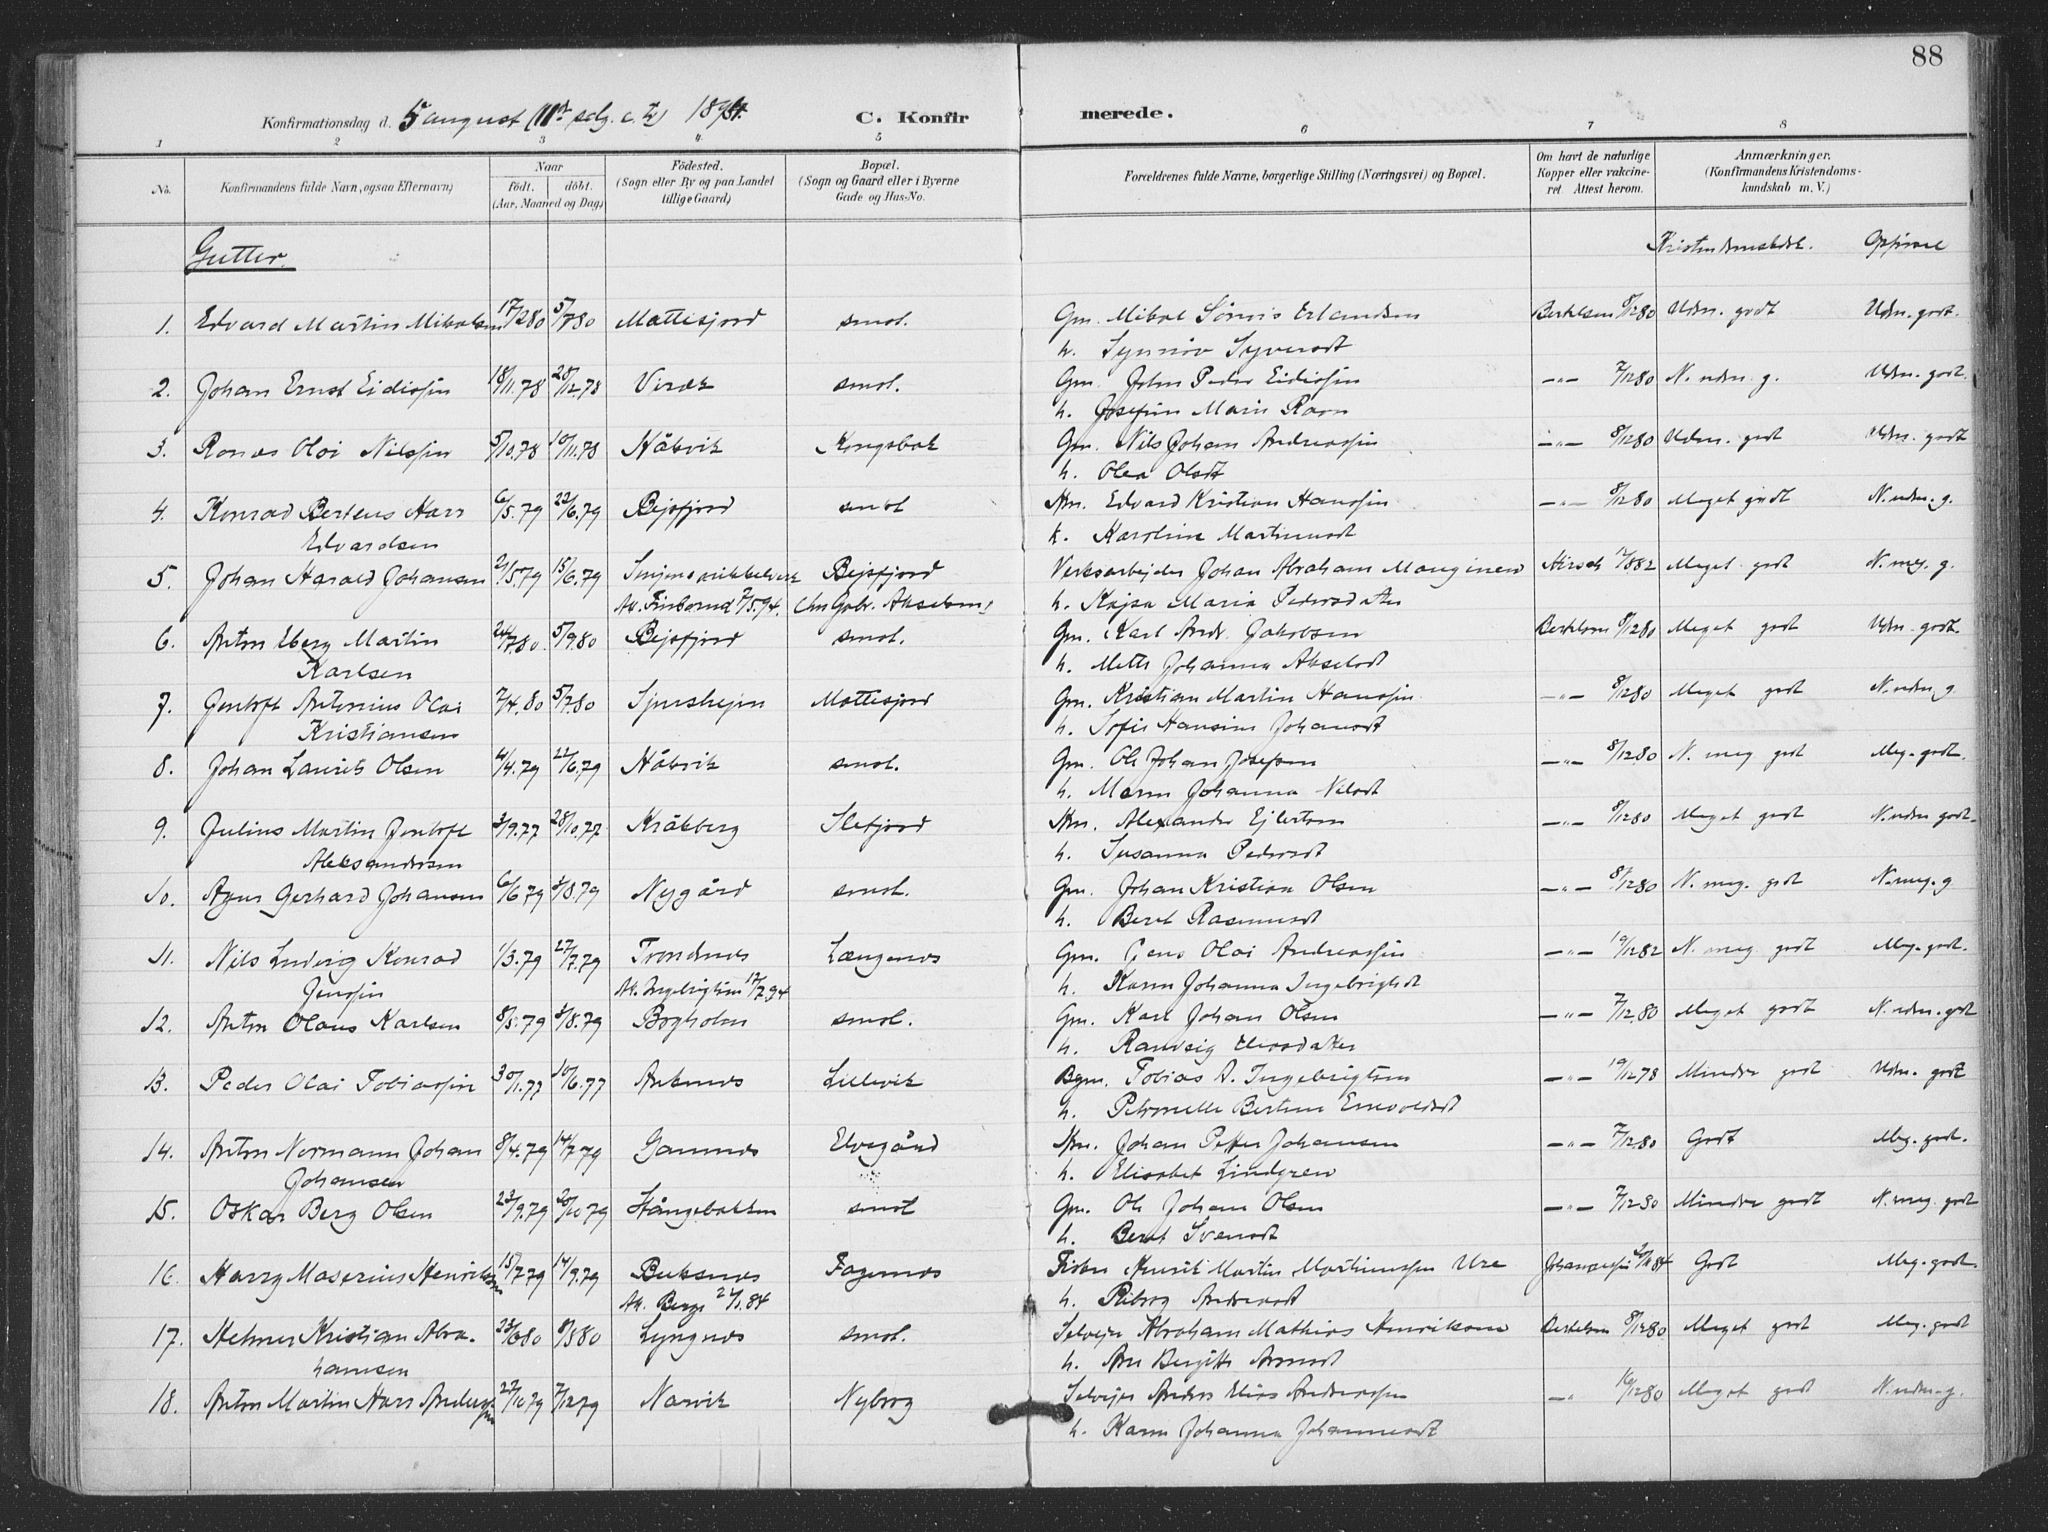 88
Konfirmationsdag d. 5 august (11te sdg. e. tr.) 1894. C. Konfirmerede.
1 2 3 4 5 6 7 8
No. Konfirmandens fulde Navn, ogsaa Efternavn) Naar födt. döbt. (Aar, Maaned og Dag) Födested. (Sogn eller By og paa Landet tillige Gaard) Bopæl. (Sogn og Gaard eller i Byerne Gade og Hus-No. Forældrenes fulde Navne, borgerlige Stilling (Næringsvei) og Bopæl. Om havt de naturlige Kopper eller vakcineret. Attest herom. Anmærkninger. (Konfirmandens Kristendomskundskab m. V.)
Gutter. Opførsel
1. Edvard Martin Mikalsen 17/2 80 5/7 80 Mattisfjord smst. Gm. Mikal Erlandsen Bertelsen 8/12 80 Udm. godt Udm. godt.
h. Synnøv Syversdt
2. Johan Ernst Eidissen 18/11.78 28/12.78 Virak smst. Gm. John Peder Eidissen —"— 7/12 80 N. udm. g. Udm. godt.
h. Josefine Marie Ravn
3. Olai Nilssen 5/10.78 10/11.78 Håkvik Kongsbak Gm. Nils Johan Andreassen —"— 8/12 80 Udm. godt Udm. godt
h. Olea Olsdt
4. Konrad Berteus Hans 6/5.79 22/6.79 Bejsfjord smst Stm. Edvard Kristian Hanssen —"— 8/12 80 Meget godt N. udm. g.
Edvardsen h. Karoline Martinusdt
5. Johan Harald Johansen 21/5.79 15/6.79 Bejsfjord Verksarbejder Johan Abraham Hirsch 7/8 82 Meget godt N. meg. g.
(hos Gabr. Akselsen) h. Kajsa Maria Pedersdatter
6. Anton Eberg Martin 24/7.80 5/9.80 Bejsfjord smst. Gm. Karl Andr. Jakobsen Bertelsen 8/12 80 Meget godt Udm. godt.
Karlsen h. Mette Johanna Akselsdt
7. Jentoft Antonius Olai 7/4.80 5/7.80 Mattisfjord Gm. Kristian Martin Hanssen —"— 8/12 80 Meget godt N. udm. g
Kristiansen h. Sofie Hansine Johansdt
8. Johan Laurits Olsen 4/4.79 22/6.79 Håkvik smst. Gm. Ole Johan Josefsen —"— 8/12.80 N. meg godt Meg. godt.
h. Maren Johanna Nilsdt
9. Julius Martin Jentoft 3/9.77 28/10.77 Kråkberg Slefjord Stm. Alexander Ejlertsen —"— 8/12 80 Meget godt N. udm godt.
Aleksandersen h. Susanna Pedersdt
10. Gerhard Johansen 6/6.79 3/8.79 Nygård smst. Gm. Johan Kristian Olsen —"— 8/12 80 N. meg. godt N. meg. g
h. Beret Rasmusdt
11. Nils Ludvig Konrad 1/3.79 27/7.79 Trondenes Længenes Gm. Jens Olai Andreassen —"— 19/12 82 N. meg godt Meg. godt.
Jenssen At. Ingebrigtsen 17/7.94 h. Karen Johanna Ingebrigtsdt
12. Anton Olaus Karlsen 8/5.79 3/8.79 Bogholm smst. Gm. Karl Johan Olsen —"— 7/12.80 Meget godt N. udm. godt
h. Ranveig
13. Peder Olai Tobiassen 30/1.77 10/6.77 Ankenes Lillevik Bgm. Tobias A. Ingebrigtsen —"— 19/12 78 Mindre godt Udm. godt
h. Petronelle
14. Anton Normann Johan 8/4.79 14/7.79 Elvegård Stm. Johan Petter Johansen —"— 7/12.80 Godt Meg. godt.
Johansen h. Elisabet Lindgren
15. Oskar Berg Olsen 23/9.79 20/10 79 smst Gm. Ole Johan Olsen —"— 7/12 80 Mindre godt N. meg. godt
h. Beret Svensdt
16. Harry Maserius Henriksen 15/7.79 14/9.79 Buksnes Fagernes Fisker Henrik Martin Martinussen Ure Godt Meg. godt.
At. Berge h. Andreasdt
17. Helmer Kristian Abra- 23/6 80 8/8 80 Lyngnes smst. Selvejer Abraham Mathias Henriksen Bertelsen 8/12 80 Meget godt Meg. godt
hamsen h. Ane Bergitte
18. Anton Martin Hans Anderssen 27/10 79 7/12 79 Narvik Nyborg Selvejer Anders Elias Andreassen —"— 16/12 80 Meget godt N. udm. g.
h. Karen Johanna Johannesdt